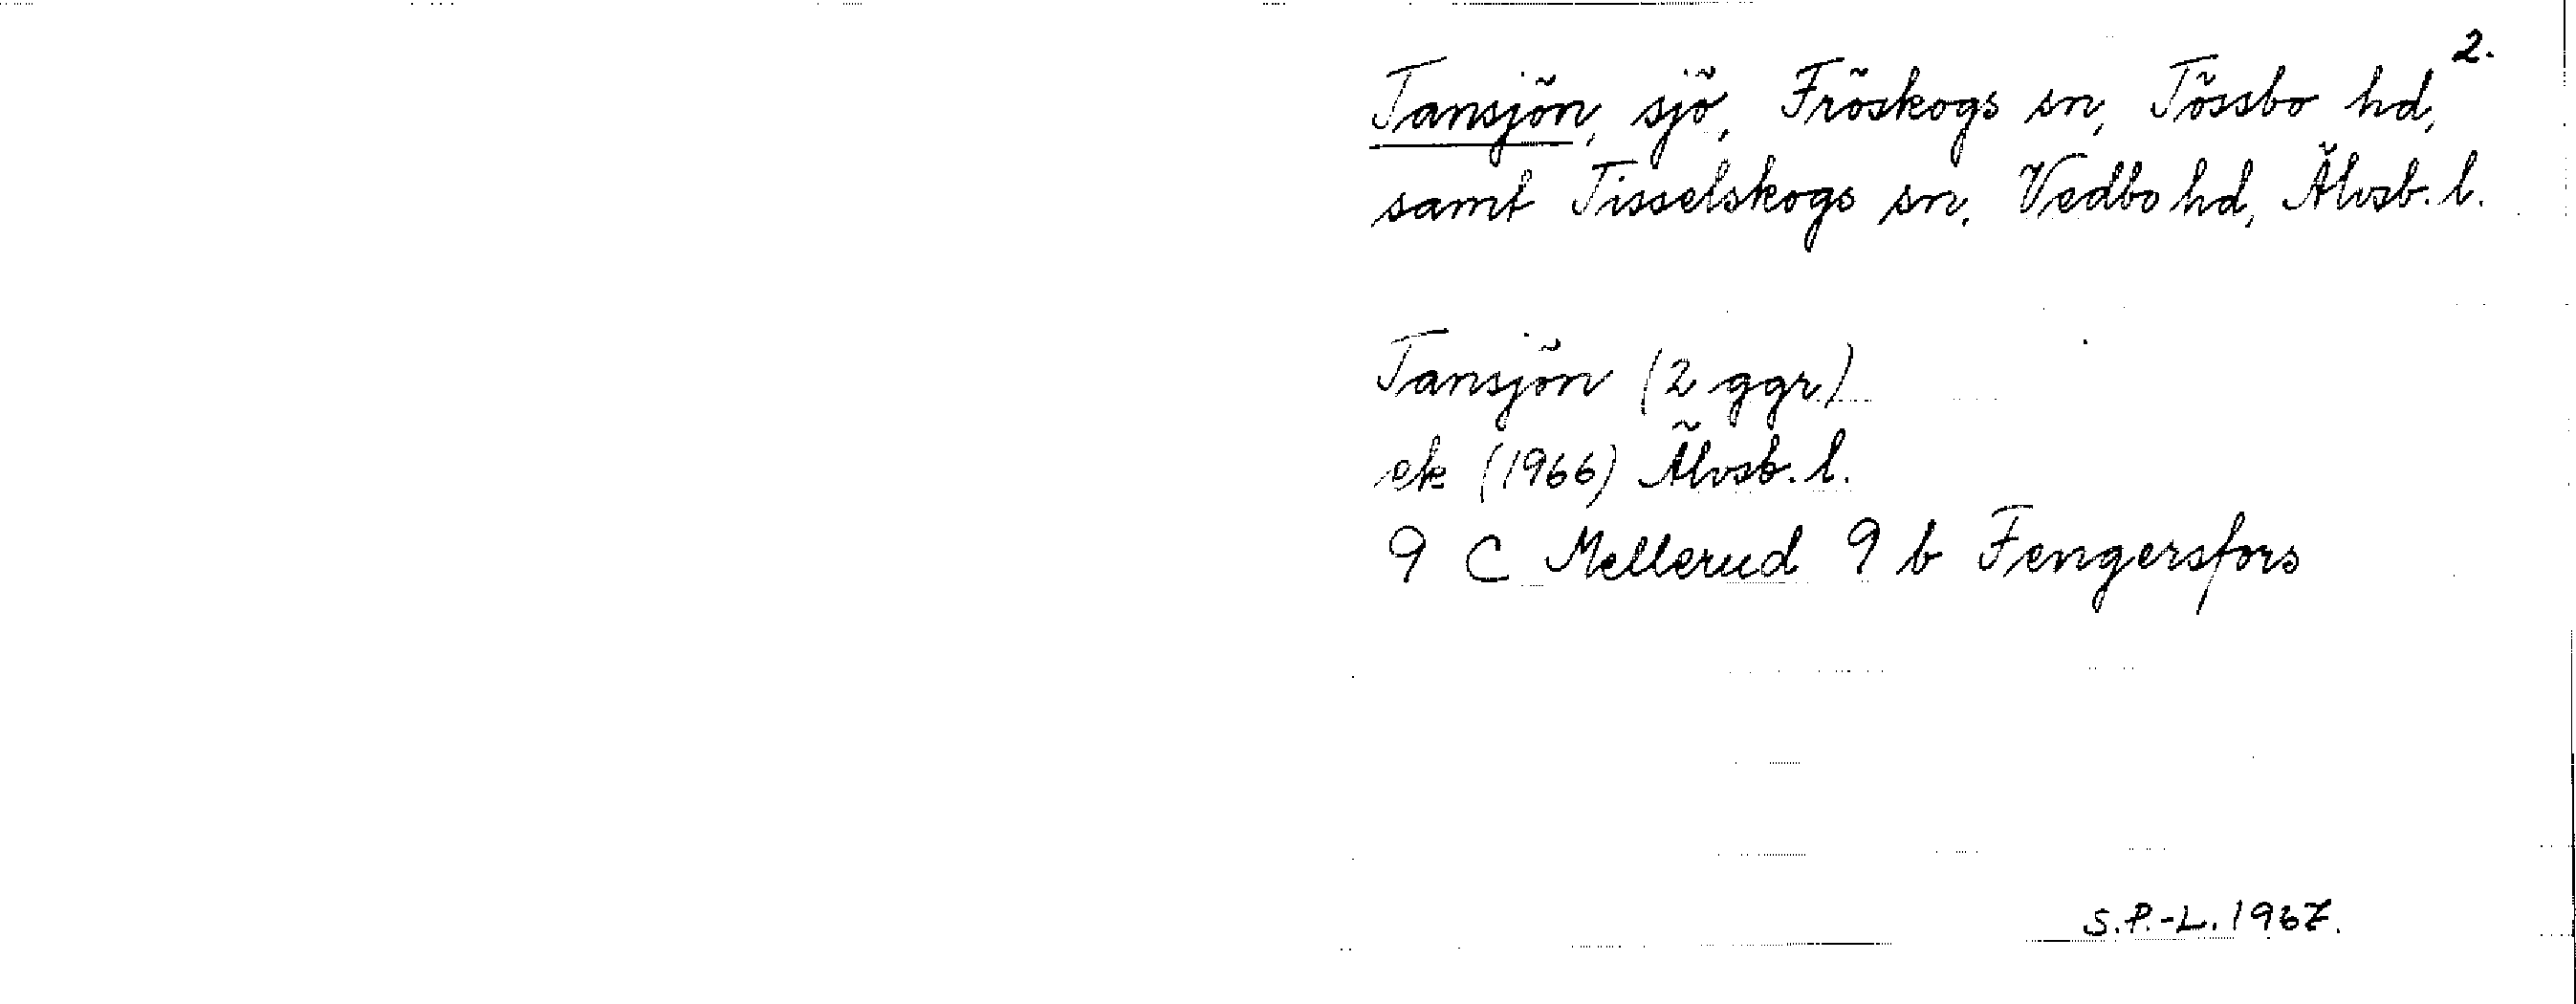 2.
Tansjön, sjö, Fröskogs sn, Tössbo hd,
samt Tisselskogs sn, Vedbo hd, Älvsb. l.
Tansjön (2 ggr)
ek (1966) Älvsb. l.
9 C Mellerud 9 b Fengersfors
S.P.-L. 1967.